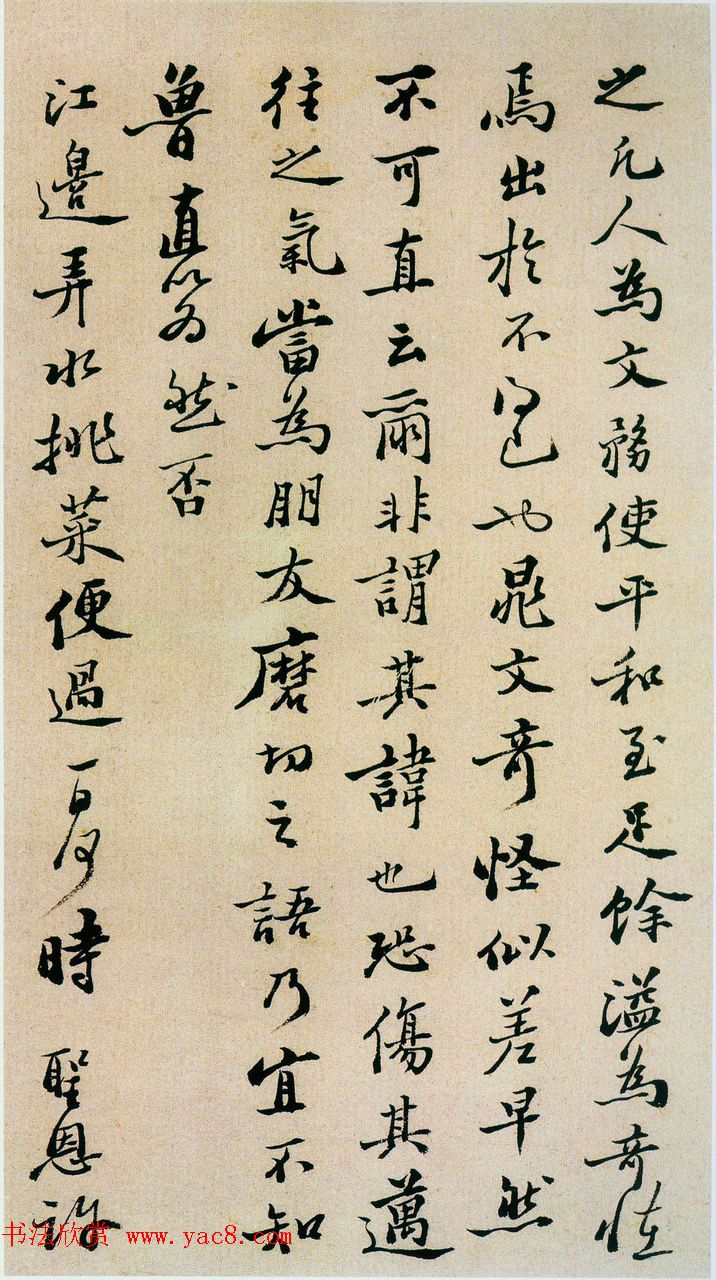 之凡人為文務使平和至足餘溢為奇怪
焉出於不得已也晁文奇怪似差早然
不可直云爾非謂其諱也恐傷其邁
往之氣當為朋友磨切之語乃宜不知
魯直以為然否
江邊弄水挑菜便過一日何時聖恩許
书法欣赏 www.yac8.com